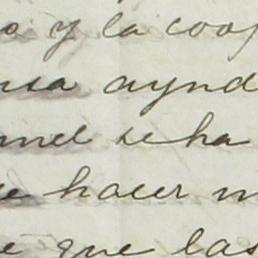 o y la coop
nsa aynd
nel se ha
e hacer m
e que las